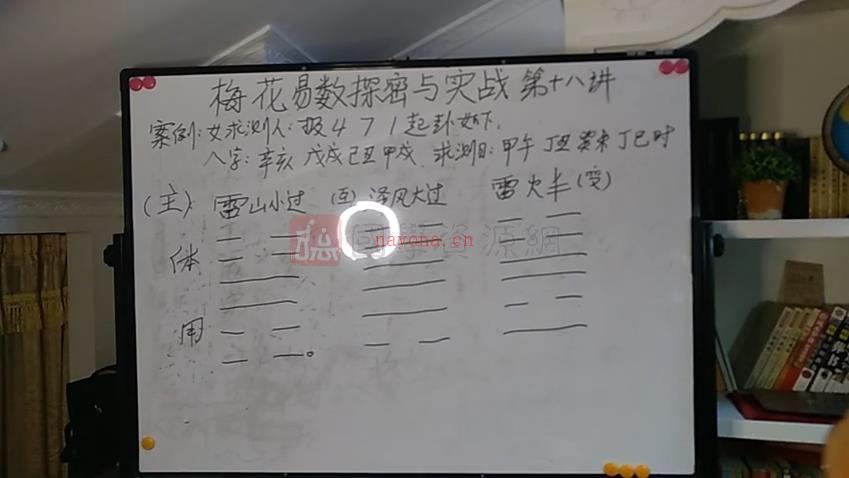 梅花易数探密与实战第十八讲
案例:女求测人:报4 7 1起卦如下.
八字:辛亥 戊戌 己丑 甲戌 求测日:甲午 丁丑 癸未 丁巳时
(主) 雷山小过 (互) 泽风大过 雷火丰(变)
国学资源網
nayona.cn
体
用